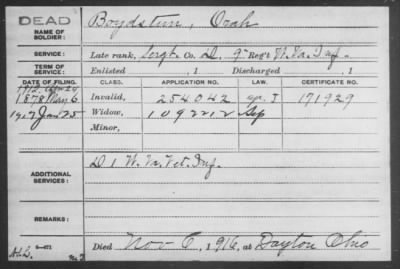 DEAD
NAME OF SOLDIER: Boydstun, Orah
SERVICE: Late rank, Sergt Co. D, 9" Reg't W. Va. Inf.
TERM OF SERVICE: Enlisted , 1 Discharged , 1
DATE OF FILING. CLASS. APPLICATION NO. LAW. CERTIFICATE NO.
1912
1878 May 6 Invalid, 254042 171929
1917 Jan 25 Widow, 1092212
Minor,
ADDITIONAL SERVICES: D 1 W. Va. Vet. Inf.
REMARKS:
Died Nov 6, 1916, at Dayton Ohio